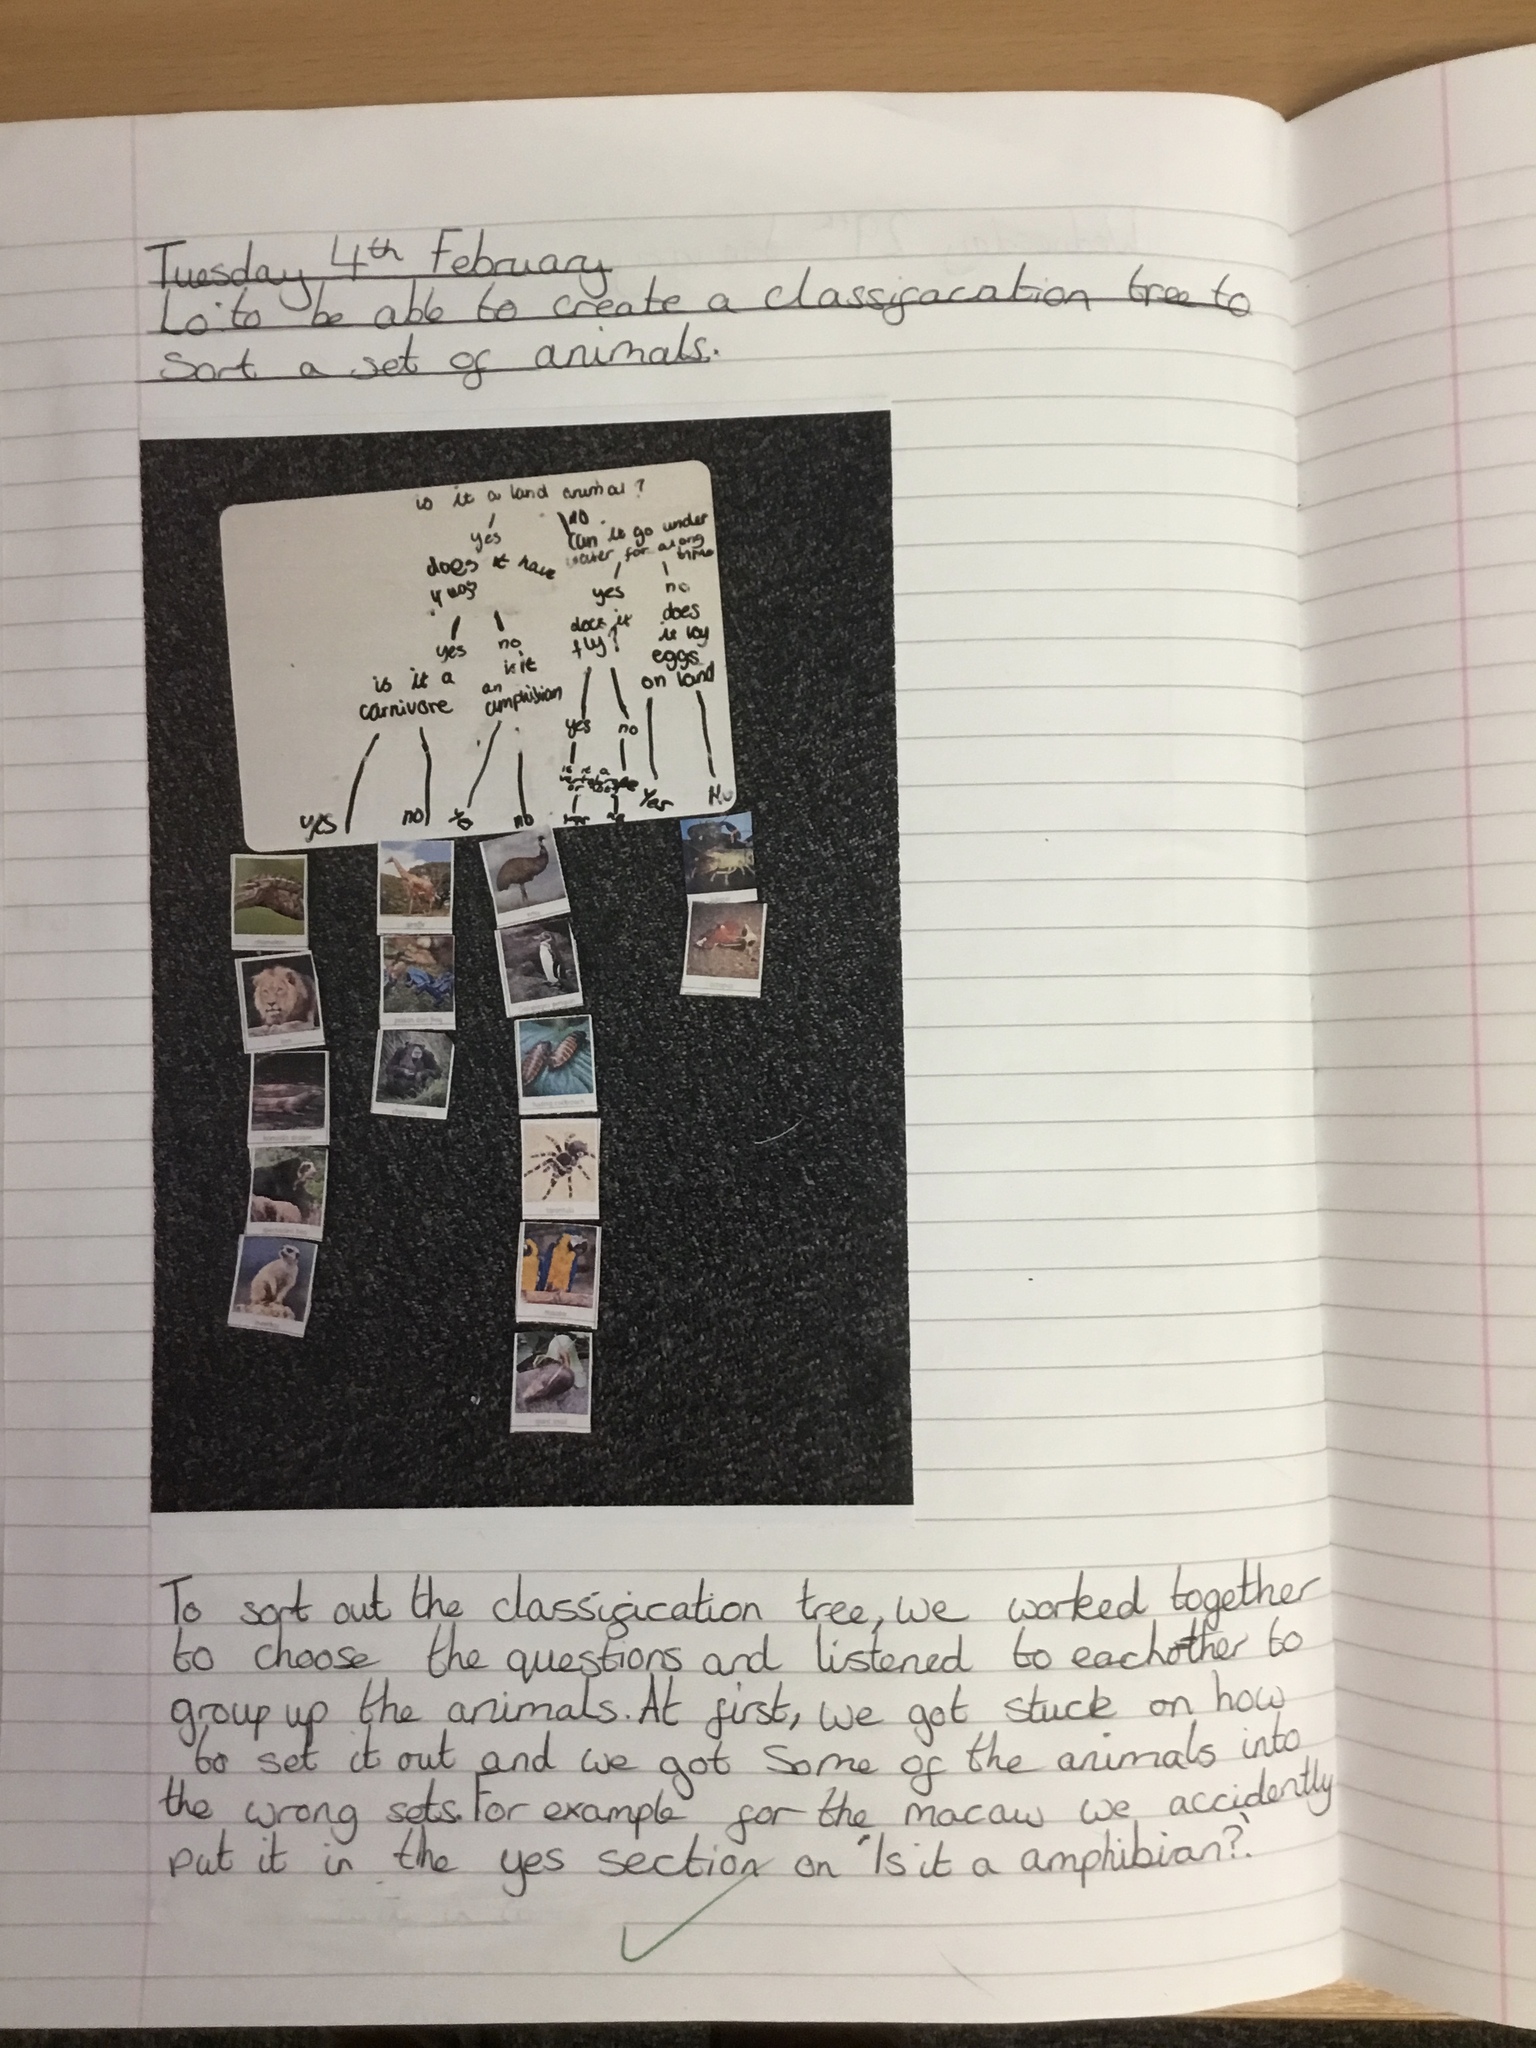 Tuesday 4th February
Lo: to be able to create a classifacation tree to
sort a set of animals.
is it a land animal?
yes
no
does it have
4 legs?
can it go under
water for along
time
yes
no
yes
no
is it a
carnivore
is it
an
amphibian
does it
fly?
does
it lay
eggs
on land
yes
no
is it a
or
yes
no
yes
no
Yes
No
giraffe
lion
poison dart frog
komodo dragon
chimpanzee
hissing cockroach
tarantula
macaw
To sort out the classification tree, we worked together
to choose the questions and listened to eachother to
group up the animals. At first, we got stuck on how
to set it out and we got some of the animals into
the wrong sets. For example for the macaw we accidently
put it in the yes section on "Is it a amphibian?".